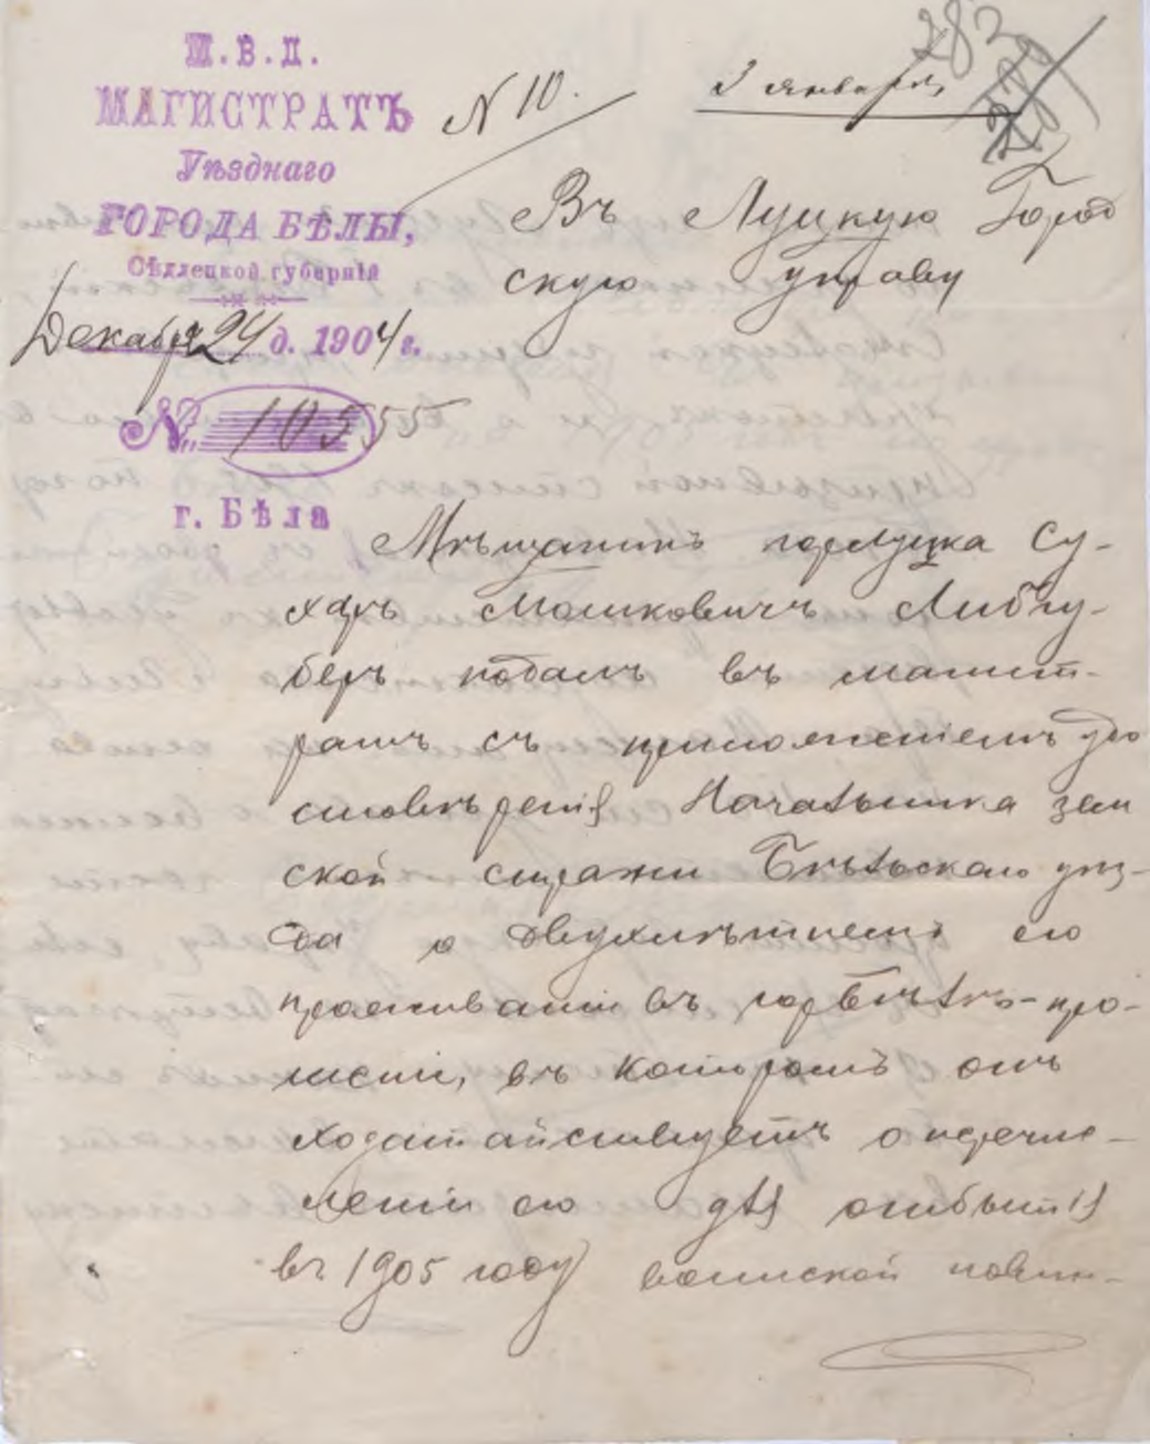 М.В.Д.
МАГИСТРАТЪ
Уѣзднаго
ГОРОДА БѢЛЫ,
Сѣдлецкой губерніи
Декабря 24 д. 1904 г.
№ 10555
г. Бѣла
N 10.
3 января
282
Въ Луцкую Город
скую управу
Мѣщанинъ гор Луцка Су-
харъ Мошковичъ Либгу-
беръ подалъ въ магист-
ратъ съ приложеніемъ удо
стовѣренія Начальника зем
ской стражи Бѣльскаго уѣз-
да о двухлѣтнемъ его
проживаніи въ гор Бѣлѣ - про-
шеніе, въ которомъ онъ
ходатайствуетъ о перечис-
леніи его для отбытія
въ 1905 году воинской повин-